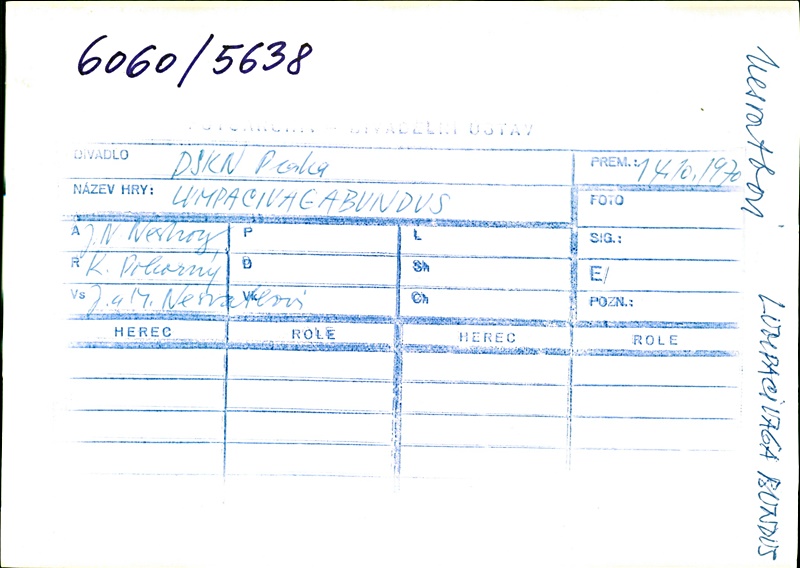 6060/5638
DIVADELNÍ ÚSTAV
DIVADLO DSKN Praha PREM.: 14.10.1970
NÁZEV HRY: LUMPACIVAGABUNDUS FOTO
A J.N. Nestroy P L SIG.:
R K. Pokorný D Sh E/
Vs J. a M. Nesvatbovi Vk Ch POZN.:
HEREC ROLE HEREC ROLE
LUMPACIVAGABUNDUS